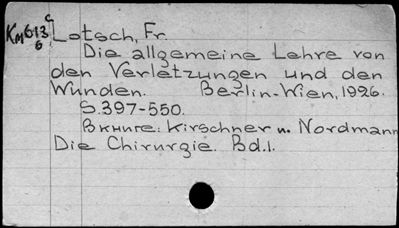 Км613 с
6
Lotsch, Fr.
Die allgemeine Lehre von
den Verletzungen und den
Wunden. Berlin-Wien, 1926.
S. 397-550.
В книге: Kirschner u. Nordmann
Die Chirurgie. Bd. 1.